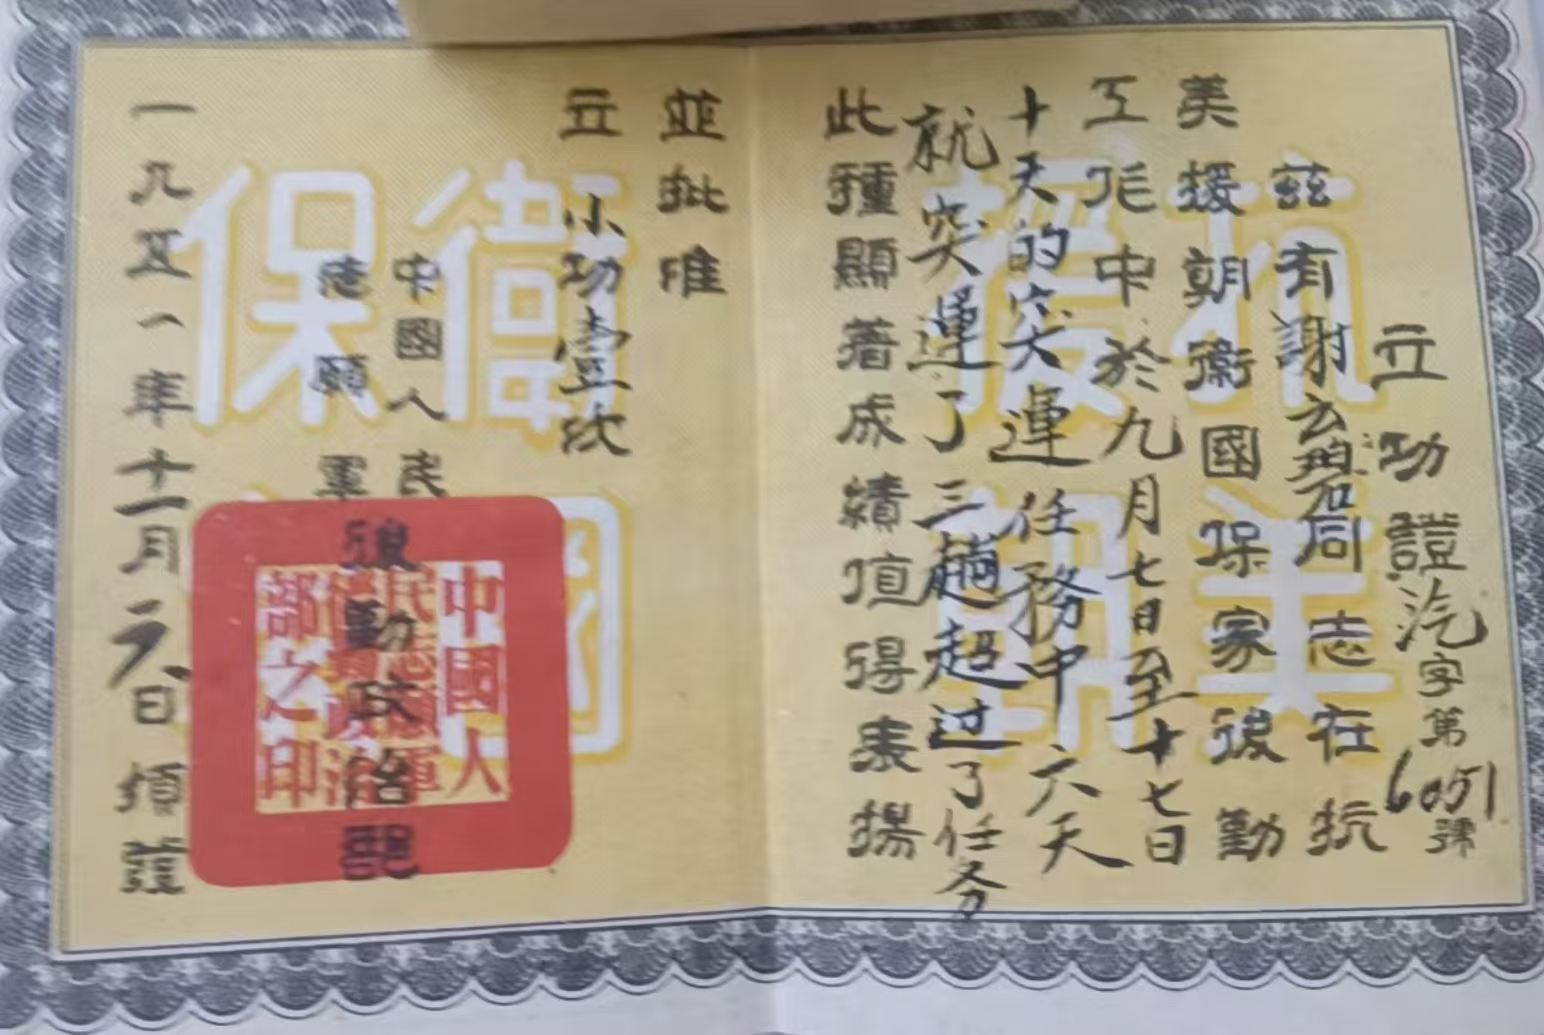 立功證汽字第6051號
茲有謝玄碧同志在抗
美援朝衛國保家後勤
工作中於九月七日至十七日
十天的突運任務中六天
就突運了三趟超过了任务
此種顯著成績值得表揚
並批准
立小功壹次
中國人民
志願軍
後勤政治部
一九五一年十一月六日頒發
抗美
援朝
衛國
保
中國人
民志願軍
部之印